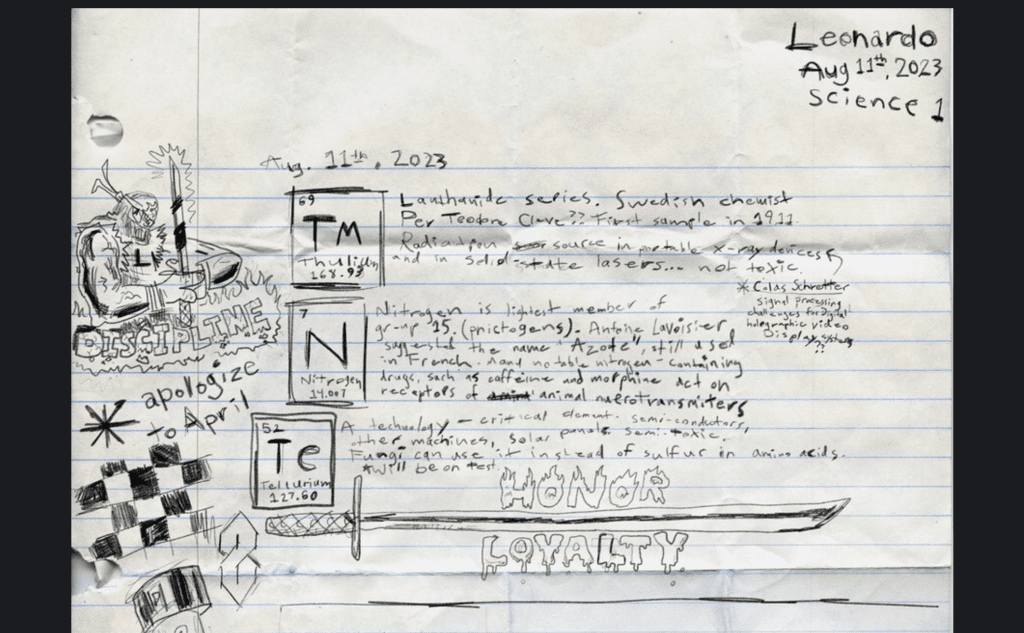 Leonardo
Aug 11th, 2023
Science 1
Aug. 11th, 2023
69
Tm
Thulium
168.93
Lanthanide series. Swedish chemist
Per Teodore Cleve?? First sample in 1911.
Radiation source in portable x-ray devices
and in solid-state lasers... not toxic.
* Colas Schretter
signal processing
challenges for Digital
holographic video
Display systems
??
L
DISCIPLINE
7
N
Nitrogen
14.007
Nitrogen is lightest member of
group 15. (pnictogens). Antoine Lavoisier
suggested the name "Azote", still used
in French. notable nitrogen-containing
drugs, such as caffeine and morphine act on
receptors of animal nuerotransmiters
* apologize
to April
52
Te
Tellurium
127.60
A technology-critical element. semi-conductors,
other machines, solar panels. semi-toxic.
Fungi can use it instead of sulfur in amino acids.
*will be on test.
HONOR
LOYALTY